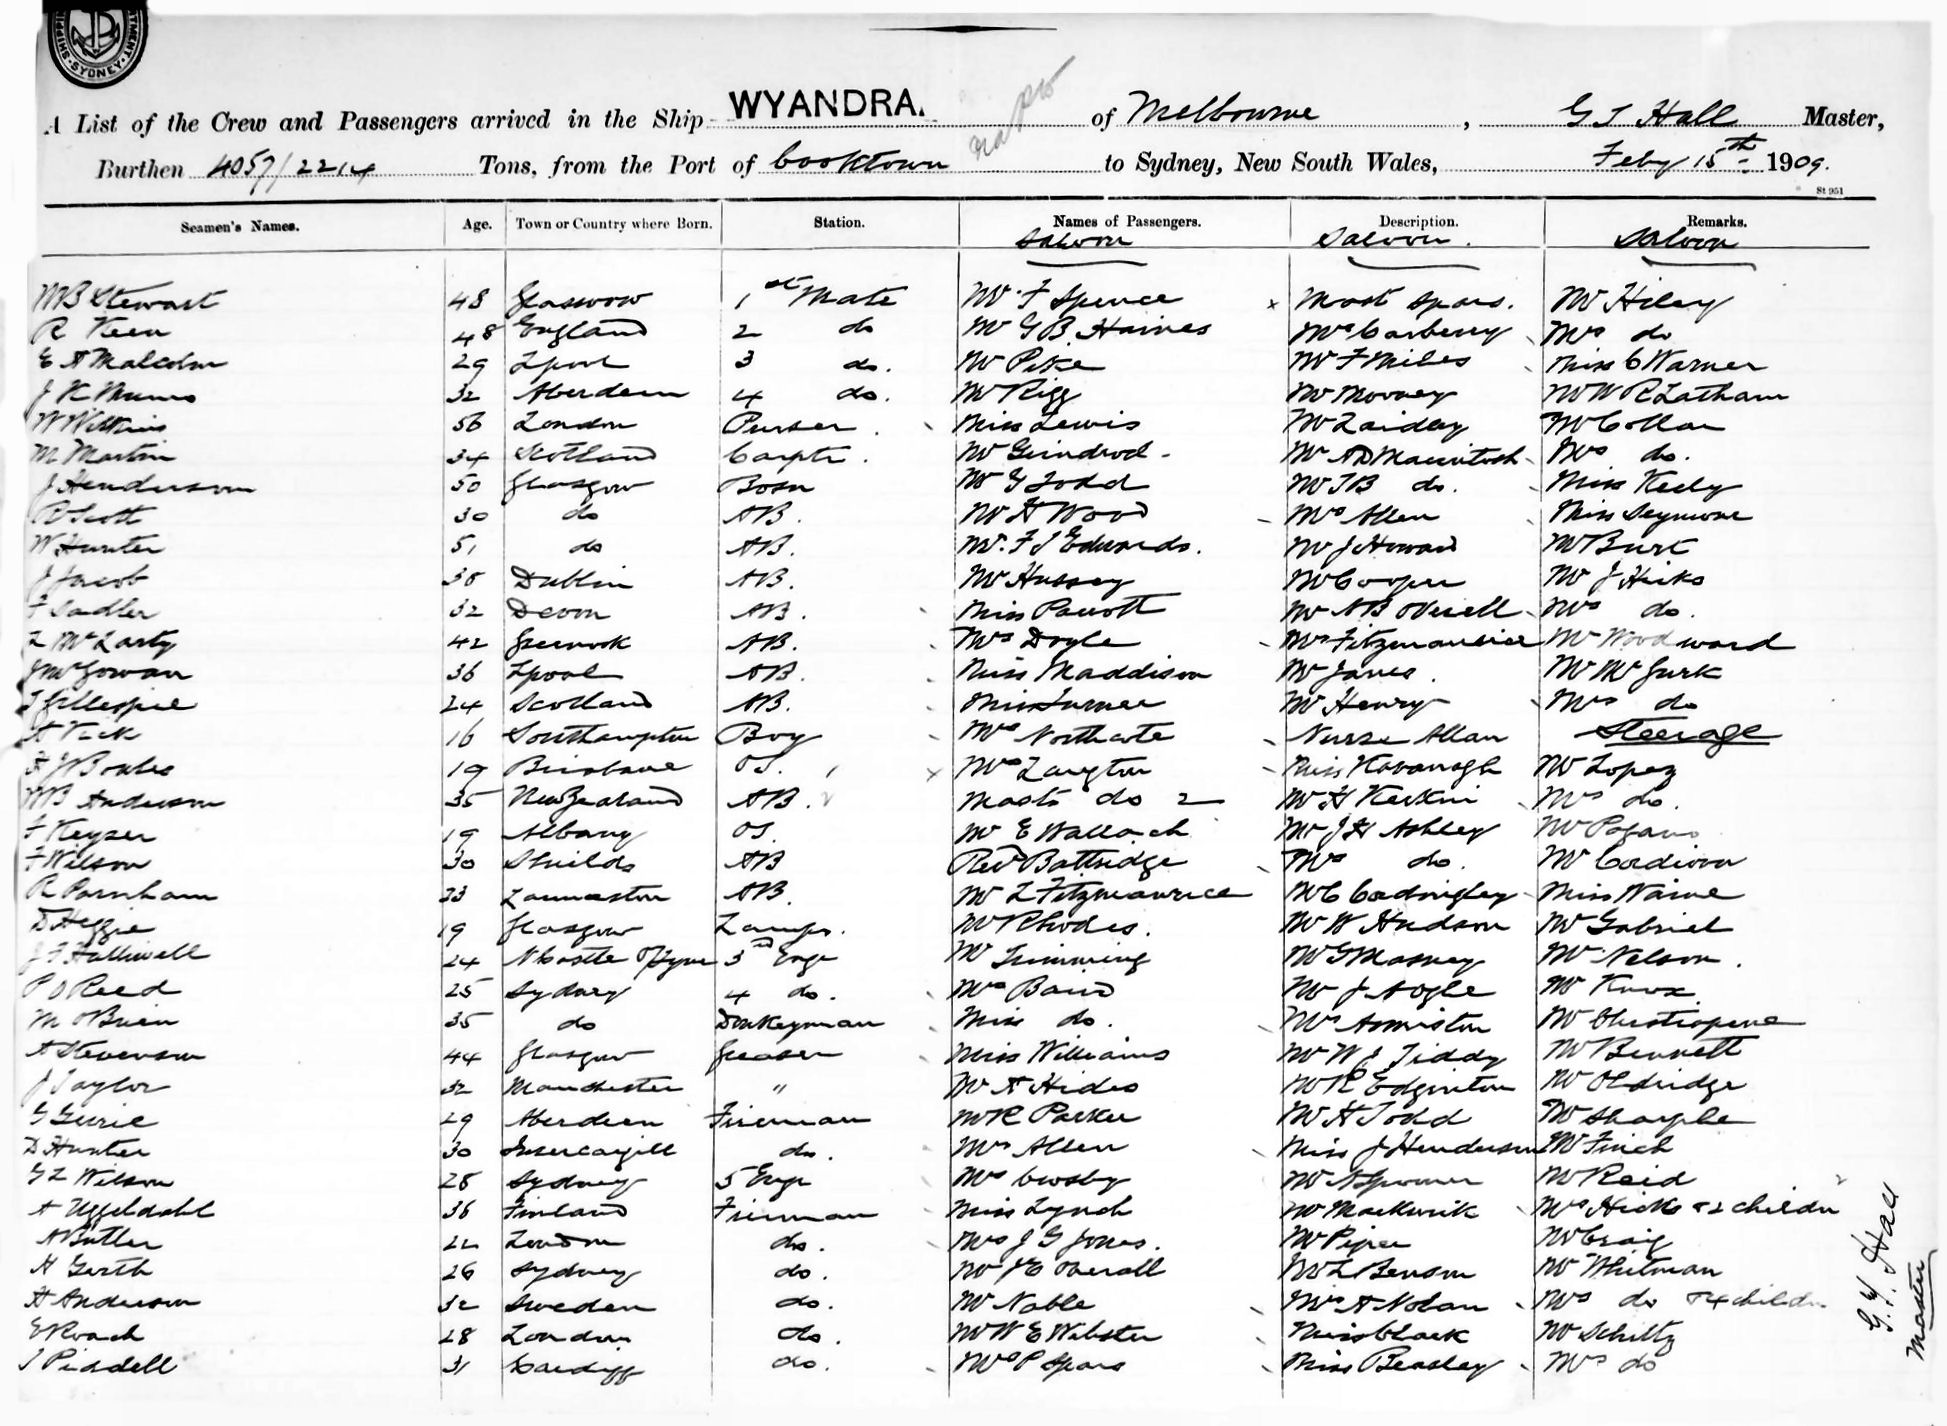 SYDNEY
A List of the Crew and Passengers arrived in the Ship WYANDRA. of Melbourne, G S Hall Master,
Burthen 4057/2214 Tons, from the Port of Cooktown to Sydney, New South Wales, Feby 15th 1909.
St 951
Seamen's Names. Age. Town or Country where Born. Station. Names of Passengers. Description. Remarks.
Saloon Saloon. Saloon
M B Stewart 48 Glasgow 1st Mate Mr F Spence x Mast Spears. Mr Hiley
R Keen 48 England 2 do Mr G B Haines Mrs Carberry Mrs do
E A Malcolm 29 Lpool 3 do. Mr Pike Mr F Miles Miss C Warner
J K Munro 32 Aberdeen 4 do. Mr Rigg Mr Mooney Mr W R Latham
W Wilkins 56 London Purser. Miss Lewis Mr Laidley Mr Collar
M Martin 34 Scotland Carptr. Mr Grindrod - Mr A D Macintosh Mrs do.
J Henderson 50 Glasgow Bosn Mr G Todd Mr J B do. Miss Keely
R Scott 30 do AB. Mr H Wood Mrs Allen Miss Seymour
W Hunter 51 do AB. Mr. F J Edwards. Mr J Howard Mr Burt
J Jacob 38 Dublin AB. Mr Hussey Mr Cooper Mr J Hicks
F Sadler 32 Devon AB. Miss Parrott Mr N B Overell Mrs do.
L McLarty 42 Greenock AB. Mrs Doyle Mrs Fitzmaurice Mr Woodward
J McGowan 36 Lpool AB. Miss Maddison Mr Janes. Mr McGurk
J Gillespie 24 Scotland AB. Miss Turner Mr Henry Mrs do
A Tuck 16 Southampton Boy Mrs Northcote Nurse Allan Steerage
A J Boules 19 Brisbane OS. Mrs Langton Miss Kavanagh Mr Lopez
W B Anderson 35 New Zealand AB. Masts do 2 Mr H Kerkin Mrs do.
F Keyser 19 Albany OS. Mr E Wallach Mr J H Ashley Mr Pagano
F Wilson 30 Shields AB Revd Battridge Mrs do. Mr Cordiova
R Parnham 33 Launceston AB. Mr L Fitzmaurice Mr C Codringley Miss Waine
D Heggie 19 Glasgow Lamps. Mr Rhodes. Mr W Hudson Mr Gabriel
J F Halliwell 24 Ncastle o Tyne 3rd Engr Mr Trimming Mr G Massey Mr Nelson.
P D Reed 25 Sydney 4 do. Mrs Baird Mr J A Ogle Mr Knox
M OBrien 35 do Donkeyman Miss do. Mrs Armiston Mr
A Stevenson 44 Glasgow Greaser Miss Williams Mr W J Tiddy Mr Bennett
J Taylor 32 Manchester " Mr A Hides Mr R Edginton Mr Oldridge
G Geirie 29 Aberdeen Fireman Mr R Parker Mr H Todd Mr Sharples
D Hunter 30 Invercargill do. Mrs Allen Miss J Henderson Mr Finch
G L Wilson 28 Sydney 5 Engr Mrs Crosby Mr A Spooner Mr Reid
A Uggeldahl 36 Finland Fireman Miss Lynch Mr Markwick Mrs Hicks & 2 childn
A Butler 22 London do. Mrs J G Jones. Mr Piper Mr Craig
H Gerth 26 Sydney do. Mr J E Overall Mr L Benson Mr Whitman
A Anderson 32 Sweden do. Mr Noble Mrs A Nolan Mrs do & 4 childn
E Roach 28 London do. Mr W E Webster Miss Clack Mr Schiltz
J Piddell 31 Cardiff do. Mrs P Spears Miss Beasley Mrs do
G. S. Hall
Master